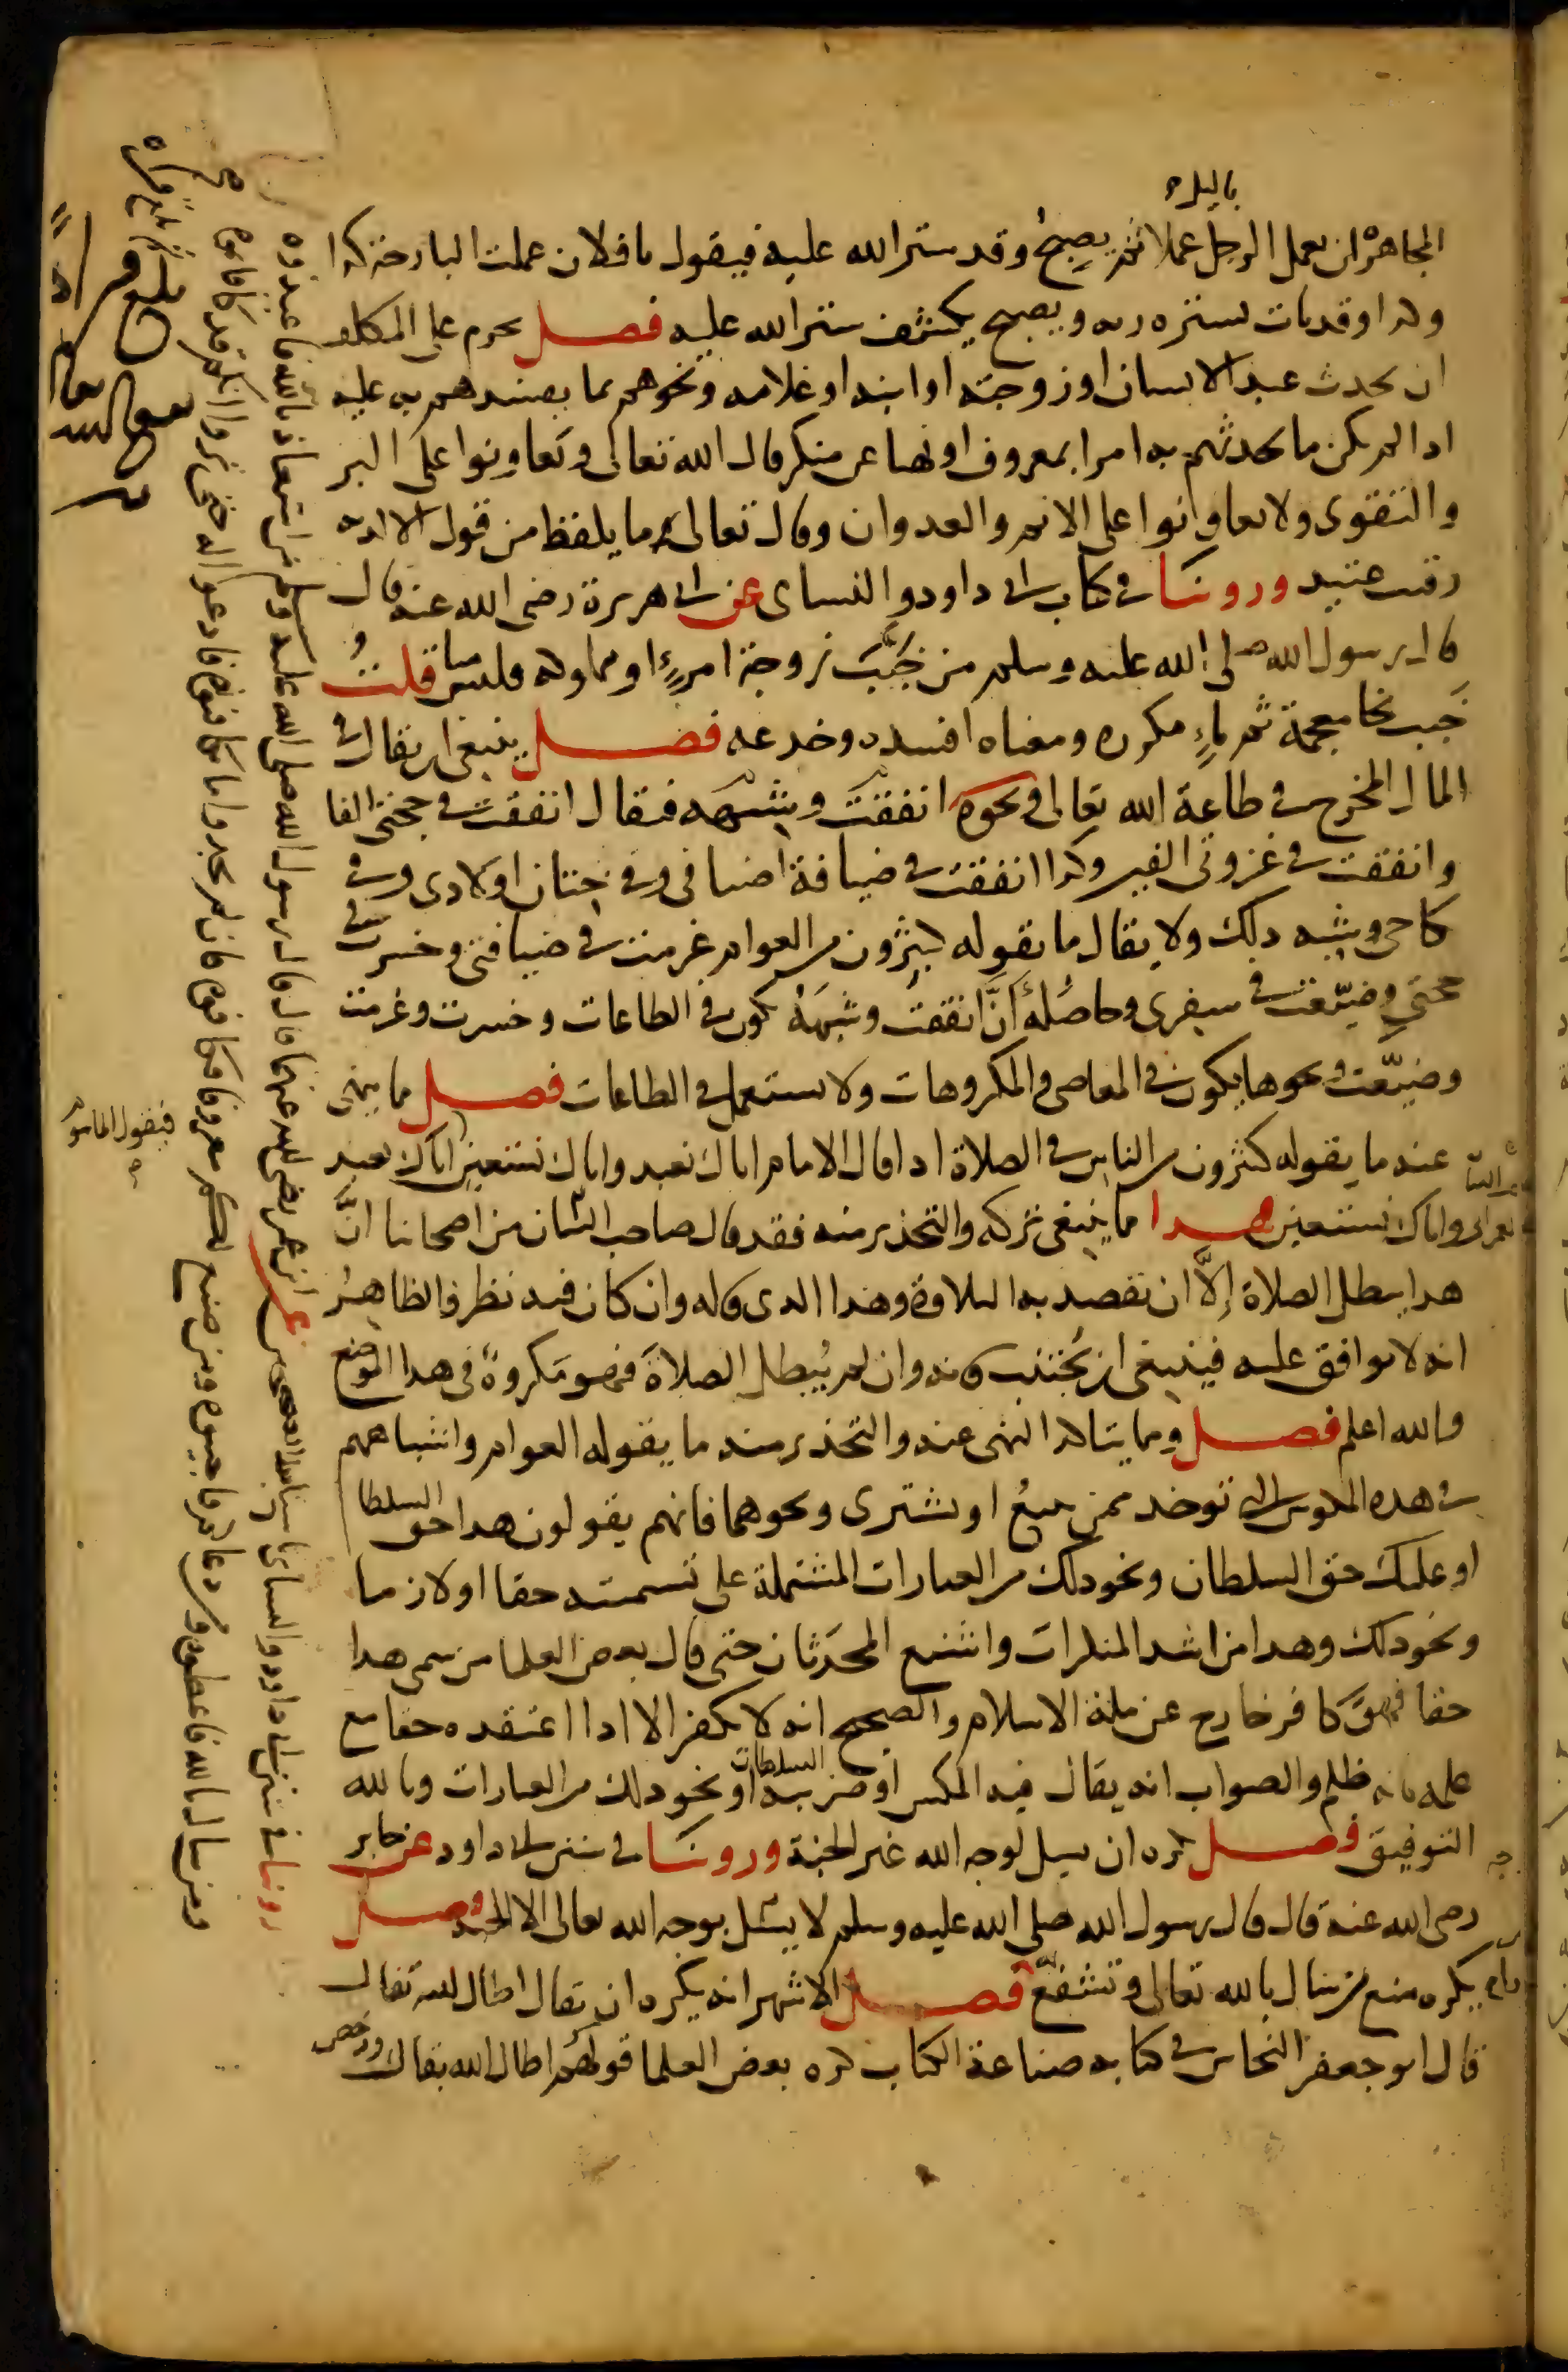 بالليل
المجاهرة ان يعمل الرجل عملا ثم يصبح وقد ستر الله عليه فيقول يا فلان عملت البارحة كذا
وكذا وقد بات يستره ربه ويصبح يكشف ستر الله عليه فصل يحرم على المكلف
ان يحدث عبد الانسان او زوجته او ابنه او غلامه ونحوهم بما يفسدهم به عليه
اذا لم يكن ما يحدثهم به امرا بمعروف او نهيا عن منكر قال الله تعالى وتعاونوا على البر
والتقوى ولا تعاونوا على الاثم والعدوان وقال تعالى ما يلفظ من قول الا لديه
رقيب عتيد وروينا في كتابي ابي داود والنساي عن ابي هريرة رضي الله عنه قال
قال رسول الله صلى الله عليه وسلم من خبّب زوجة امرىء او مملوكه فليس منا قلتُ
خبب بخا معجمة ثم باء مكررة ومعناه افسده وخدعه فصل ينبغي ان يقال في
المال المخرج في طاعة الله تعالى ونحوه انفقت وشبهه فيقال انفقت في حجتي الفا
وانفقت في غزوتي الفين وكذا انفقت في ضيافة اضيافي وفي ختان اولادي وفي
نكاحي وشبه ذلك ولا يقال ما يقوله كثيرون من العوام غرمت في ضيافتي وخسرت في
حجتي وضيّعت في سفري وحاصله أنّ انفقت وشبهه يكون في الطاعات وخسرت وغرمت
وضيّعت ونحوها يكون في المعاصي والمكروهات ولا يستعمل في الطاعات فصل مما ينهى
عنه ما يقوله كثيرون من الناس في الصلاة اذا قال الامام اياك نعبد واياك نستعين اياك نعبد
فيقول المأموم
واياك نستعين هذا مما ينبغي تركه والتحذير منه فقد قال صاحب البيان من اصحابنا انّ
هذا يبطل الصلاة إلّا ان يقصد به التلاوة وهذا الذي قاله وان كان فيه نظر والظاهر
انه لا يوافق عليه فينبغي ان يُجتنب فانه وان لم يُبطل الصلاة فهو مكروه في هذا الموضع
والله اعلم فصل ومما يتاكد النهي عنه والتحذير منه ما يقوله العوام واشباههم
في هذه المكوس التي توخذ ممن يبيع او يشتري ونحوهما فانهم يقولون هذا حق السلطان
او عليك حق السلطان ونحو ذلك من العبارات المشتملة على تسميته حقا او لازما
ونحو ذلك وهذا من اشد المنكرات واشنع المحدثات حتى قال بعض العلما من سمى هذا
حقا فهو كافر خارج عن ملة الاسلام والصحيح انه لا يكفر الا اذا اعتقده حقا مع
علمه بانه ظلم والصواب انه يقال فيه المكس او ضريبة السلطان او نحو ذلك من العبارات وبالله
التوفيق فصل يكره ان يسل لوجه الله غير الجنة وروينا في سنن ابي داود عن جابر
رضي الله عنه قال قال رسول الله صلى الله عليه وسلم لا يسئل بوجه الله تعالى الا الجنة فصل
يكره منع من سال بالله تعالى وتشفع به
روينا في سنن ابي داود والنساي باسانيد الصحيحين عن ابن عمر رضي الله عنهما قال قال رسول الله صلى الله عليه وسلم من استعاذ بالله فاعيذوه
ومن سال بالله فاعطوه ومن دعاكم فاجيبوه ومن صنع اليكم معروفا فكافئوه فان لم تجدوا ما تكافئوه فادعوا له حتى تروا انكم قد كافاتموه
فصل الاشهر انه يكره ان يقال اطال الله بقاك
قال ابو جعفر النحاس في كتابه صناعة الكتاب كره بعض العلما قولهم اطال الله بقاك ورخص